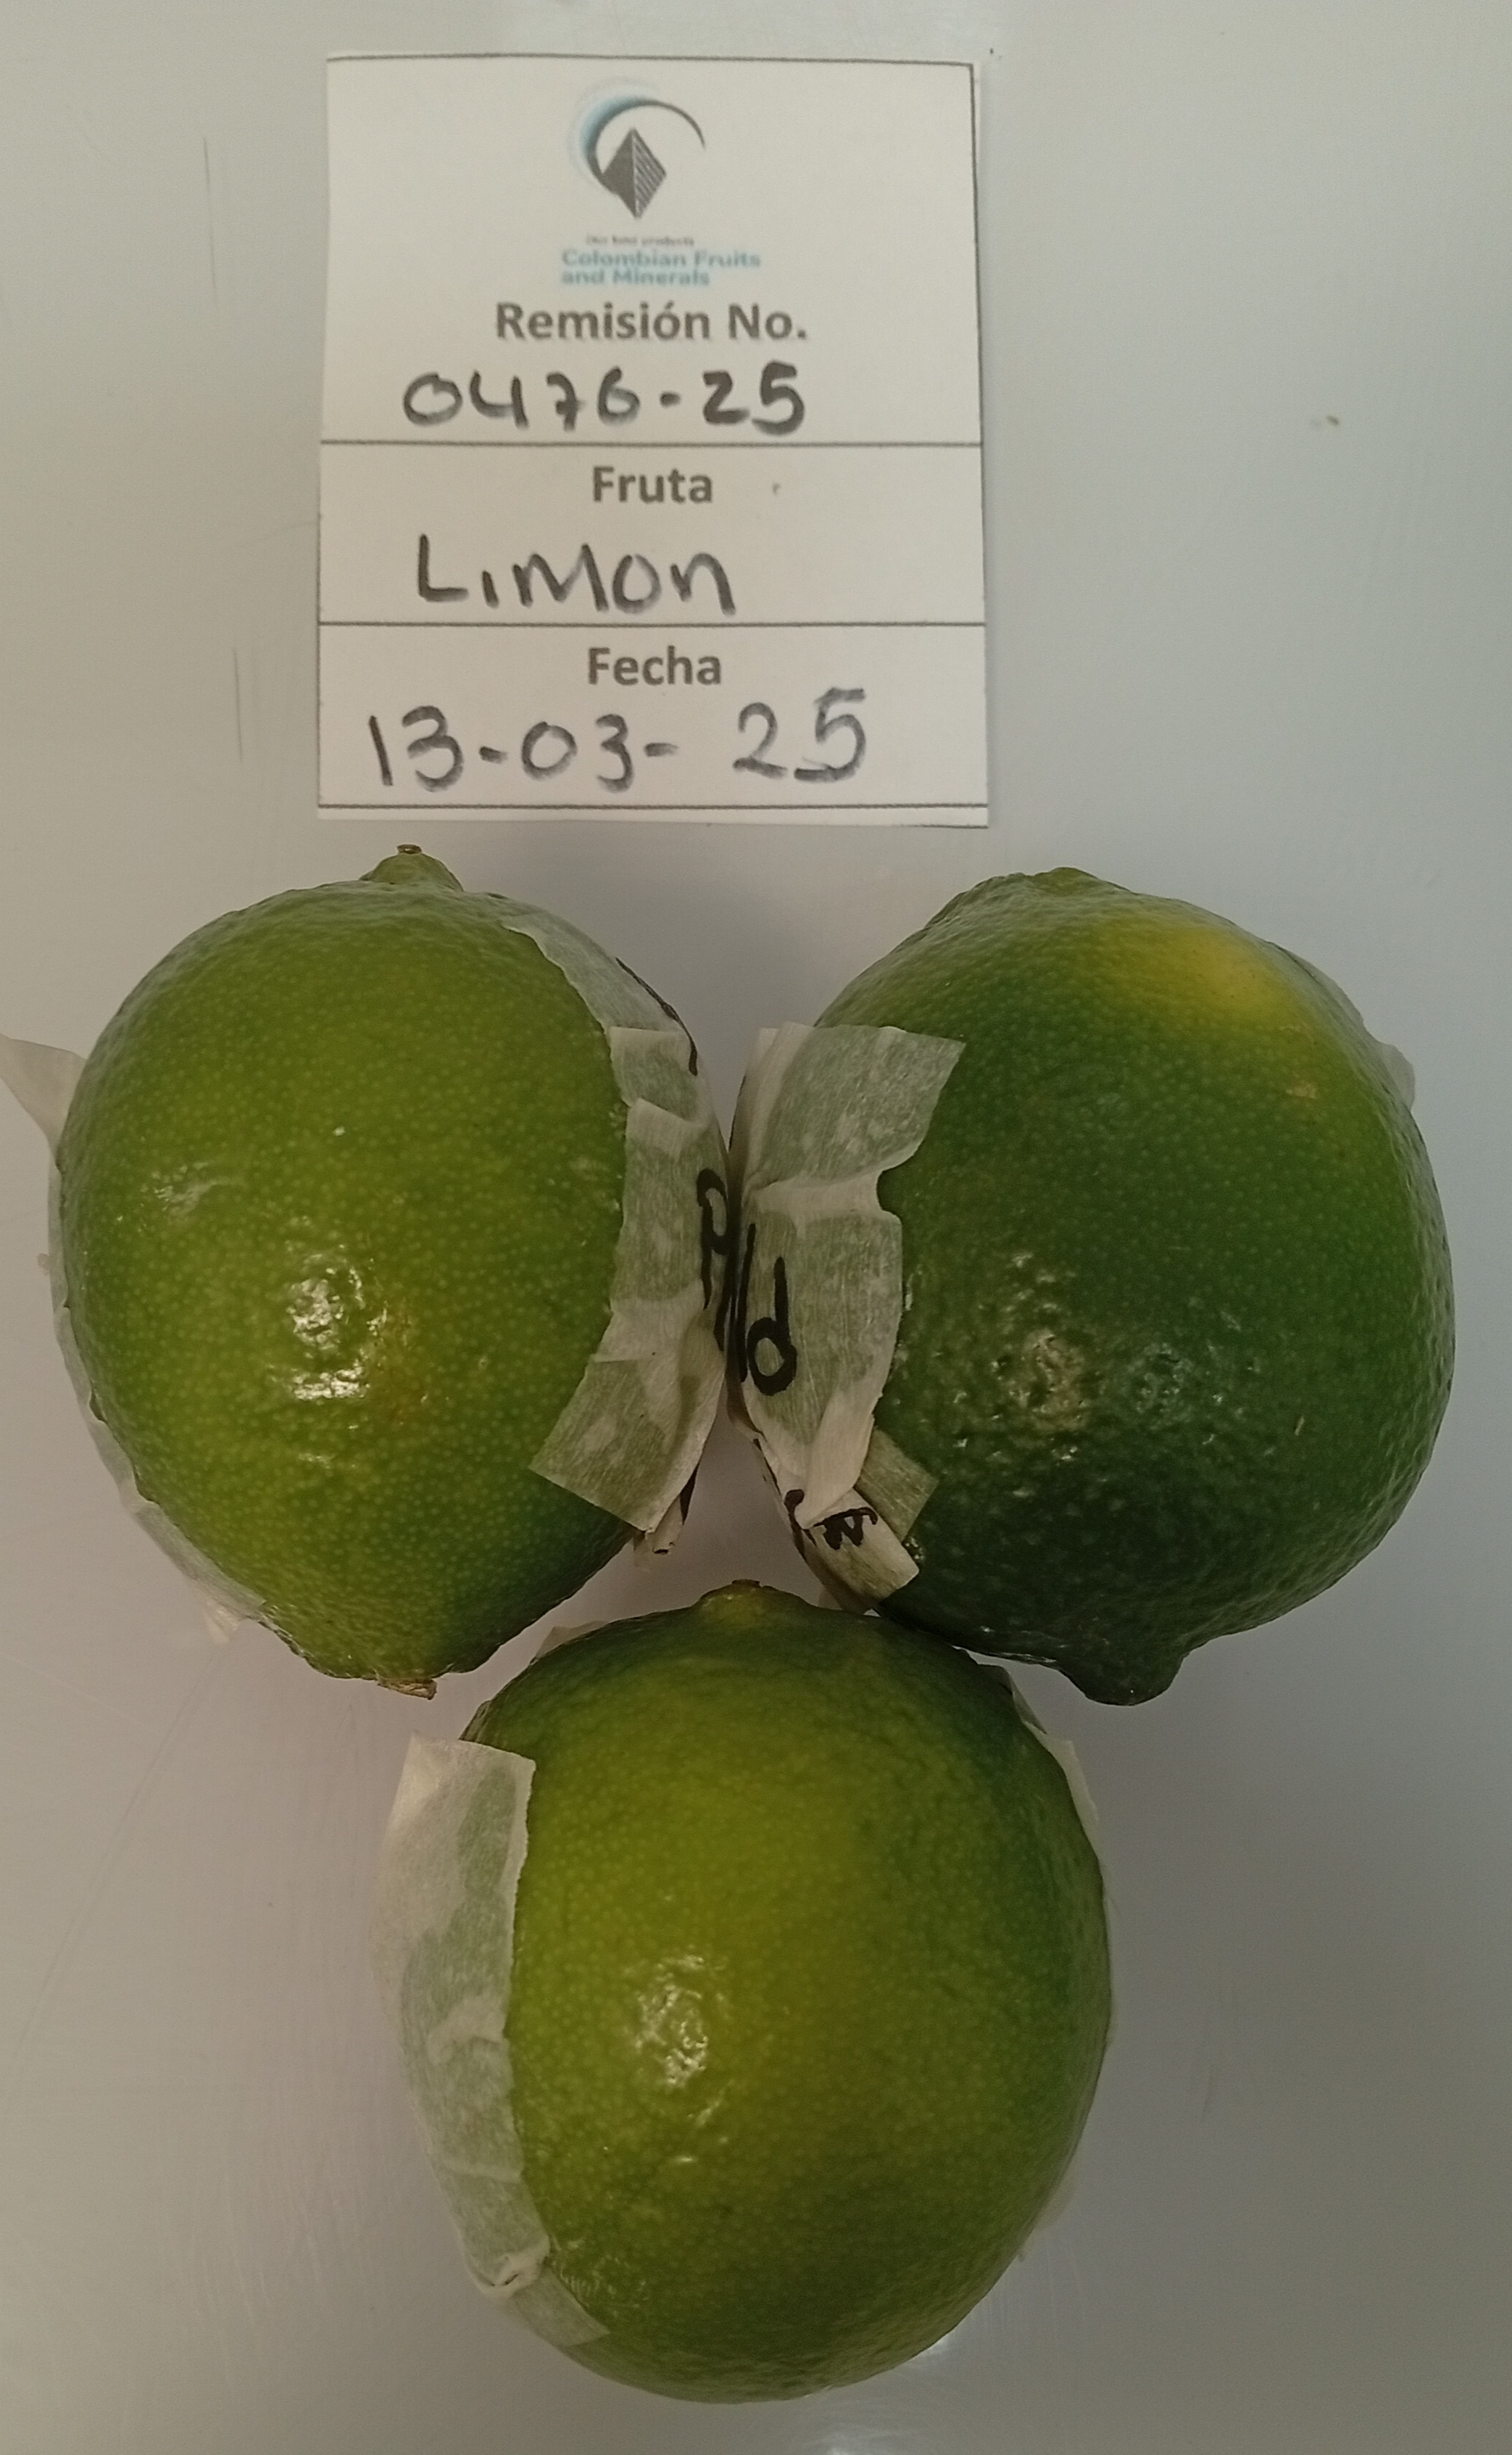 Our best products
Colombian Fruits
and Minerals
Remisión No.
0476-25
Fruta
Limon
Fecha
13-03-25